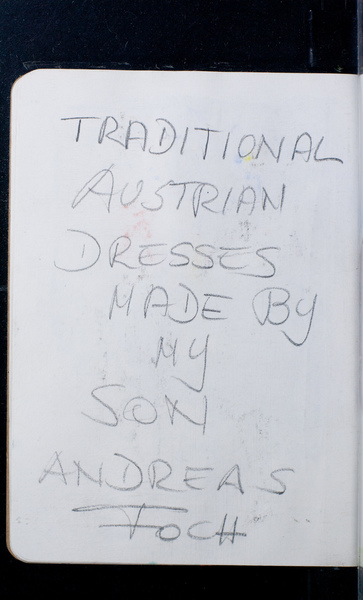 TRADITIONAL
AUSTRIAN
DRESSES
MADE BY
MY
SON
ANDREAS
FOCH